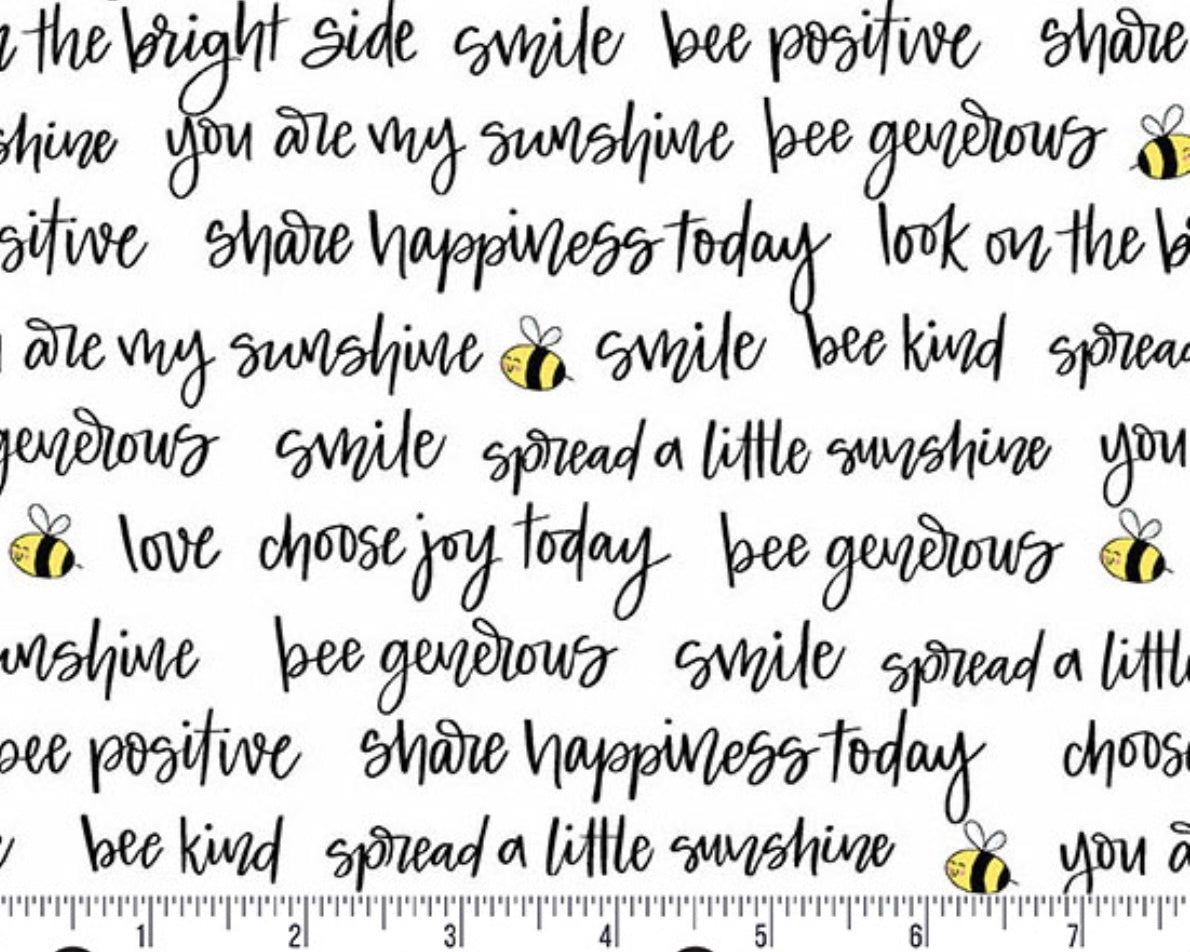 n the bright side smile bee positive share
shine you are my sunshine bee generous
sitive share happiness today look on the b
are my sunshine smile bee kind spread
generous smile spread a little sunshine you
love choose joy today bee generous
unshine bee generous smile spread a little
bee positive share happiness today choose
bee kind spread a little sunshine you a
1 2 3 4 5 6 7